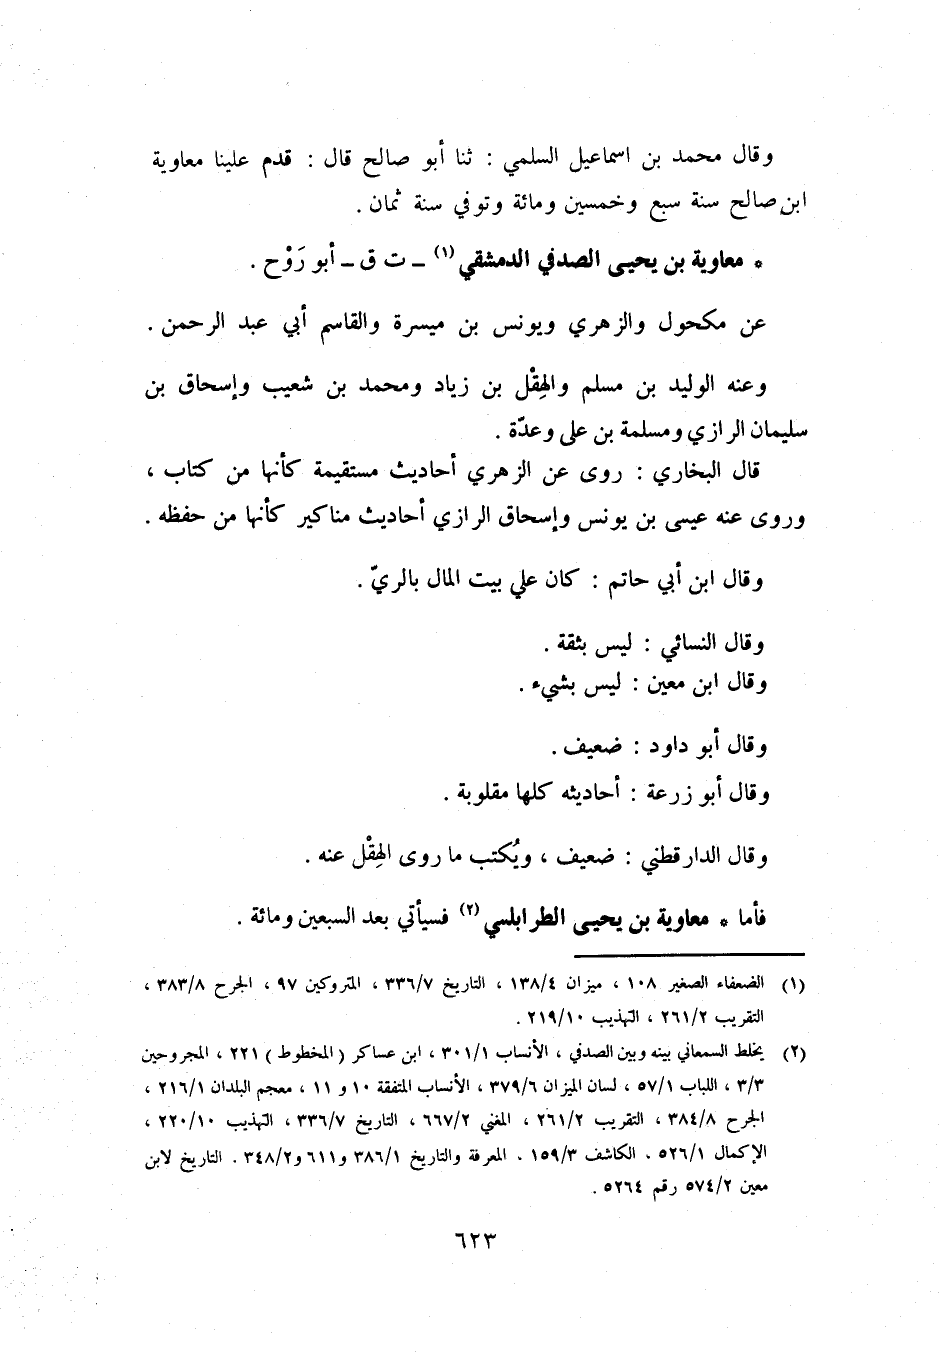 وقال محمد بن اسماعيل السلمي : ثنا أبو صالح قال : قدم علينا معاوية
ابن صالح سنة سبع وخمسين ومائة وتوفي سنة ثمان .
* معاوية بن يحيى الصدفي الدمشقي (١) ــ ت ق ــ أبو رَوْح .
عن مكحول والزهري ويونس بن ميسرة والقاسم أبي عبد الرحمن .
وعنه الوليد بن مسلم والهِقْل بن زياد ومحمد بن شعيب وإسحاق بن
سليمان الرازي ومسلمة بن علي وعدّة .
قال البخاري : روى عن الزهري أحاديث مستقيمة كأنها من كتاب ،
وروى عنه عيسى بن يونس وإسحاق الرازي أحاديث مناكير كأنها من حفظه .
وقال ابن أبي حاتم : كان علي بيت المال بالريّ .
وقال النسائي : ليس بثقة .
وقال ابن معين : ليس بشيء .
وقال أبو داود : ضعيف .
وقال أبو زرعة : أحاديثه كلها مقلوبة .
وقال الدارقطني : ضعيف ، ويُكتب ما روى الهِقْل عنه .
فأما * معاوية بن يحيى الطرابلسي (٢) فسيأتي بعد السبعين ومائة .
(١) الضعفاء الصغير ١٠٨ ، ميزان ١٣٨/٤ ، التاريخ ٣٣٦/٧ ، المتروكين ٩٧ ، الجرح ٣٨٣/٨ ،
التقريب ٢٦١/٢ ، التهذيب ٢١٩/١٠ .
(٢) يخلط السمعاني بينه وبين الصدفي ، الأنساب ٣٠١/١ ، ابن عساكر ( المخطوط ) ٢٢١ ، المجروحين
٣/٣ ، اللباب ٥٧/١ ، لسان الميزان ٣٧٩/٦ ، الأنساب المتفقة ١٠ و ١١ ، معجم البلدان ٢١٦/١ ،
الجرح ٣٨٤/٨ ، التقريب ٢٦١/٢ ، المغني ٦٦٧/٢ ، التاريخ ٣٣٦/٧ ، التهذيب ٢٢٠/١٠ ،
الإكمال ٥٢٦/١ . الكاشف ١٥٩/٣ . المعرفة والتاريخ ٣٨٦/١ و٦١١ و٣٤٨/٢ . التاريخ لابن
معين ٥٧٤/٢ رقم ٥٢٦٤ .
٦٢٣